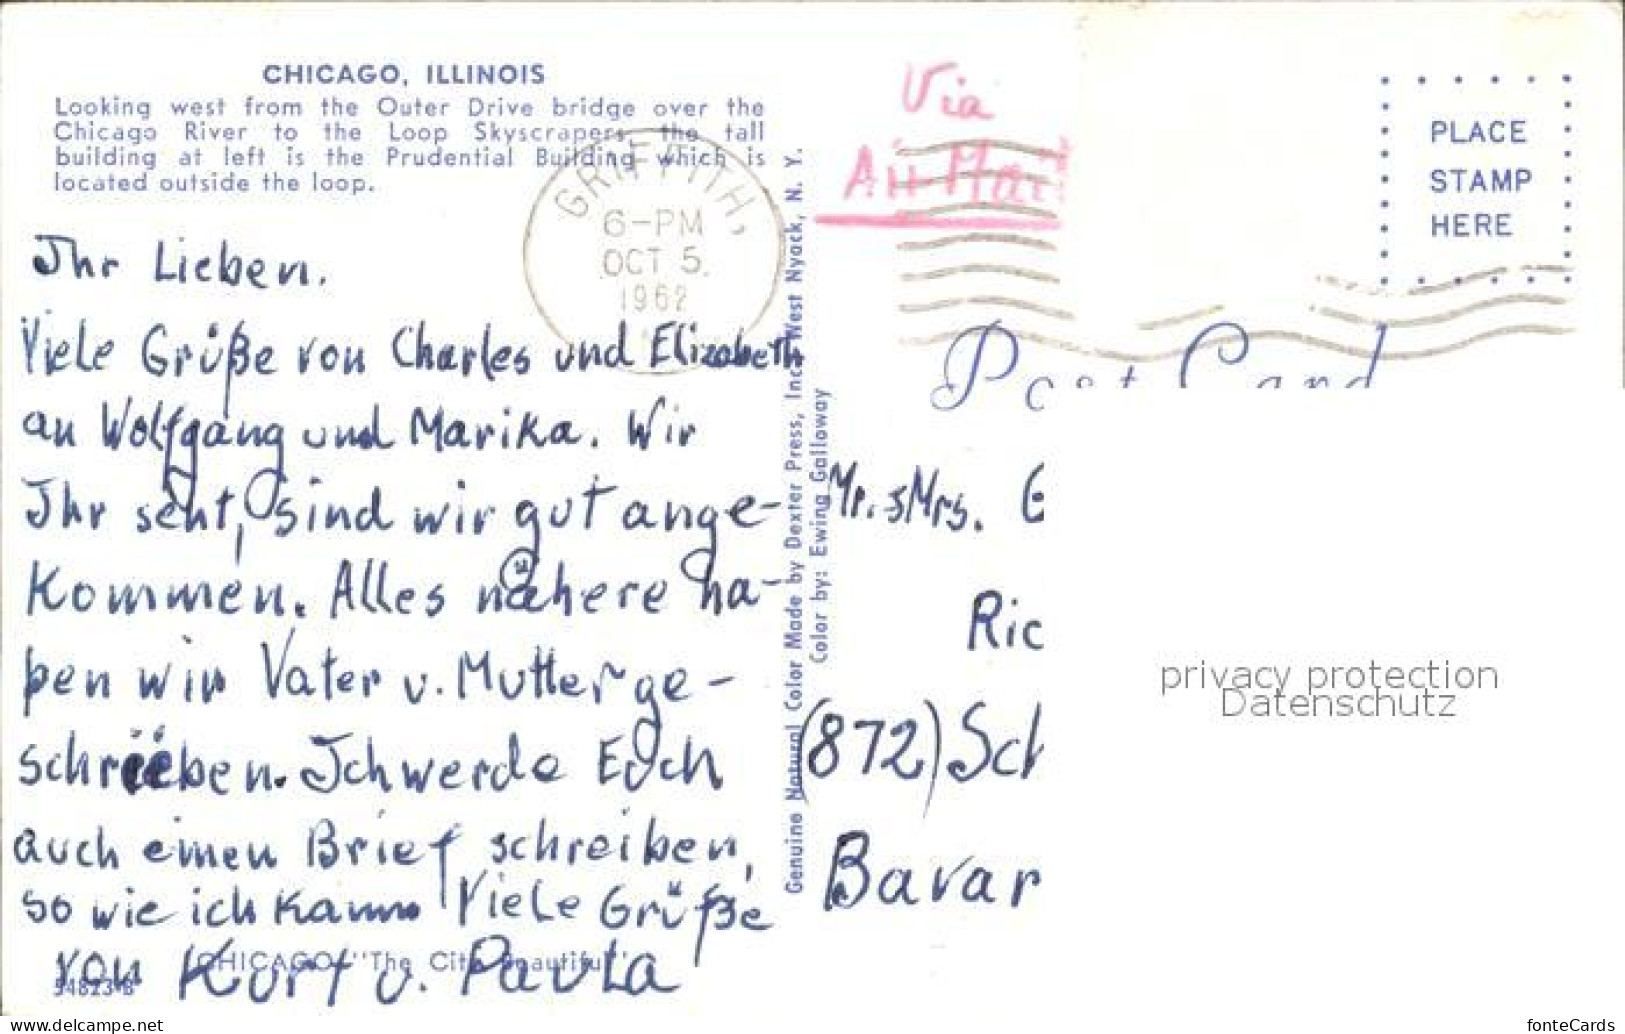 CHICAGO, ILLINOIS
Looking west from the Outer Drive bridge over the
Chicago River to the Loop Skyscrapers, the tall
building at left is the Prudential Building which is
located outside the loop.
GRIFFITH,
6-PM
OCT 5
1962
Via
Air Mail
PLACE
STAMP
HERE
Post Card
Ihr Lieben.
Viele Grüße von Charles und Elizabeth
an Wolfgang und Marika. Wir
Ihr seht, sind wir gut ange-
kommen. Alles nähere ha-
ben wir Vater u. Mutter ge-
schrieben. Ich werde Euch
auch einen Brief schreiben,
so wie ich kann Viele Grüße
von Kurt u. Paula
CHICAGO "The City Beautiful"
54823-B
Genuine Natural Color Made by Dexter Press, Inc. West Nyack, N. Y.
Color by: Ewing Galloway
Mr. & Mrs.
Ric
(872) Sch
Bavar
privacy protection
Datenschutz
www.delcampe.net
fonteCards